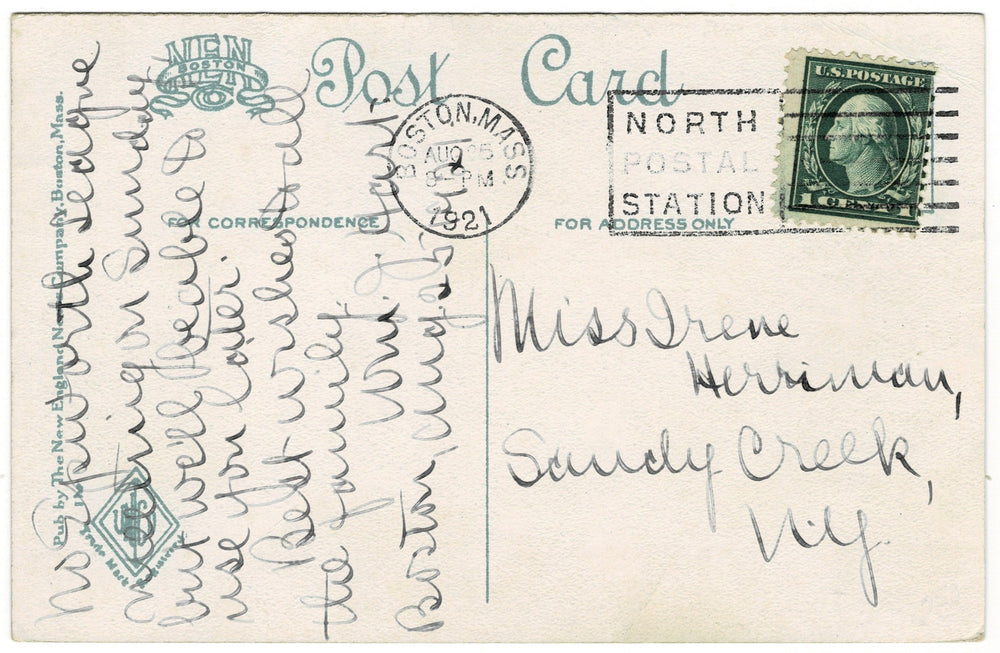 Post Card
NEN
BOSTON
Co
FOR CORRESPONDENCE
FOR ADDRESS ONLY
BOSTON, MASS.
AUG 25
8 PM
1921
NORTH
POSTAL
STATION
U.S. POSTAGE
1 CENT 1
Pub by The New England News Company, Boston, Mass.
Trade Mark
No Epworth League
meeting on Sunday
but we'll be able to
use ton later.
Best wishes to all
the family.
Wm. J. 
Boston, Aug. 25
Miss Irene
Herriman,
Sandy Creek,
N.Y.